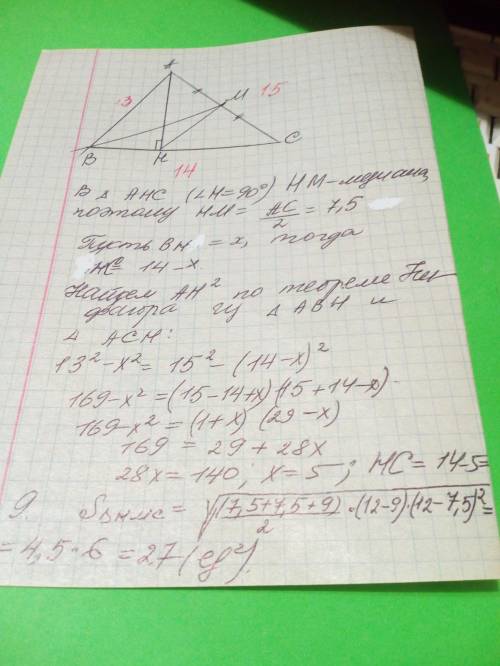 A
13
M
15
B
H
C
14
В △ АНС (∠H=90°) НМ-медиана,
поэтому НМ = AC/2 = 7,5
Пусть ВН = x, тогда
НС = 14-x
Найдем АН² по теореме Пи-
фагора из △ АВН и
△ АСН:
13² - x² = 15² - (14-x)²
169-x² = (15-14+x)(15+14-x)
169-x² = (1+x) (29-x)
169 = 29 + 28x
28x = 140; x = 5; НС = 14-5=
9. Sнмс = √((7,5+7,5+9)/2 · (12-9)·(12-7,5)² =
= 4,5·6 = 27 (ед²).